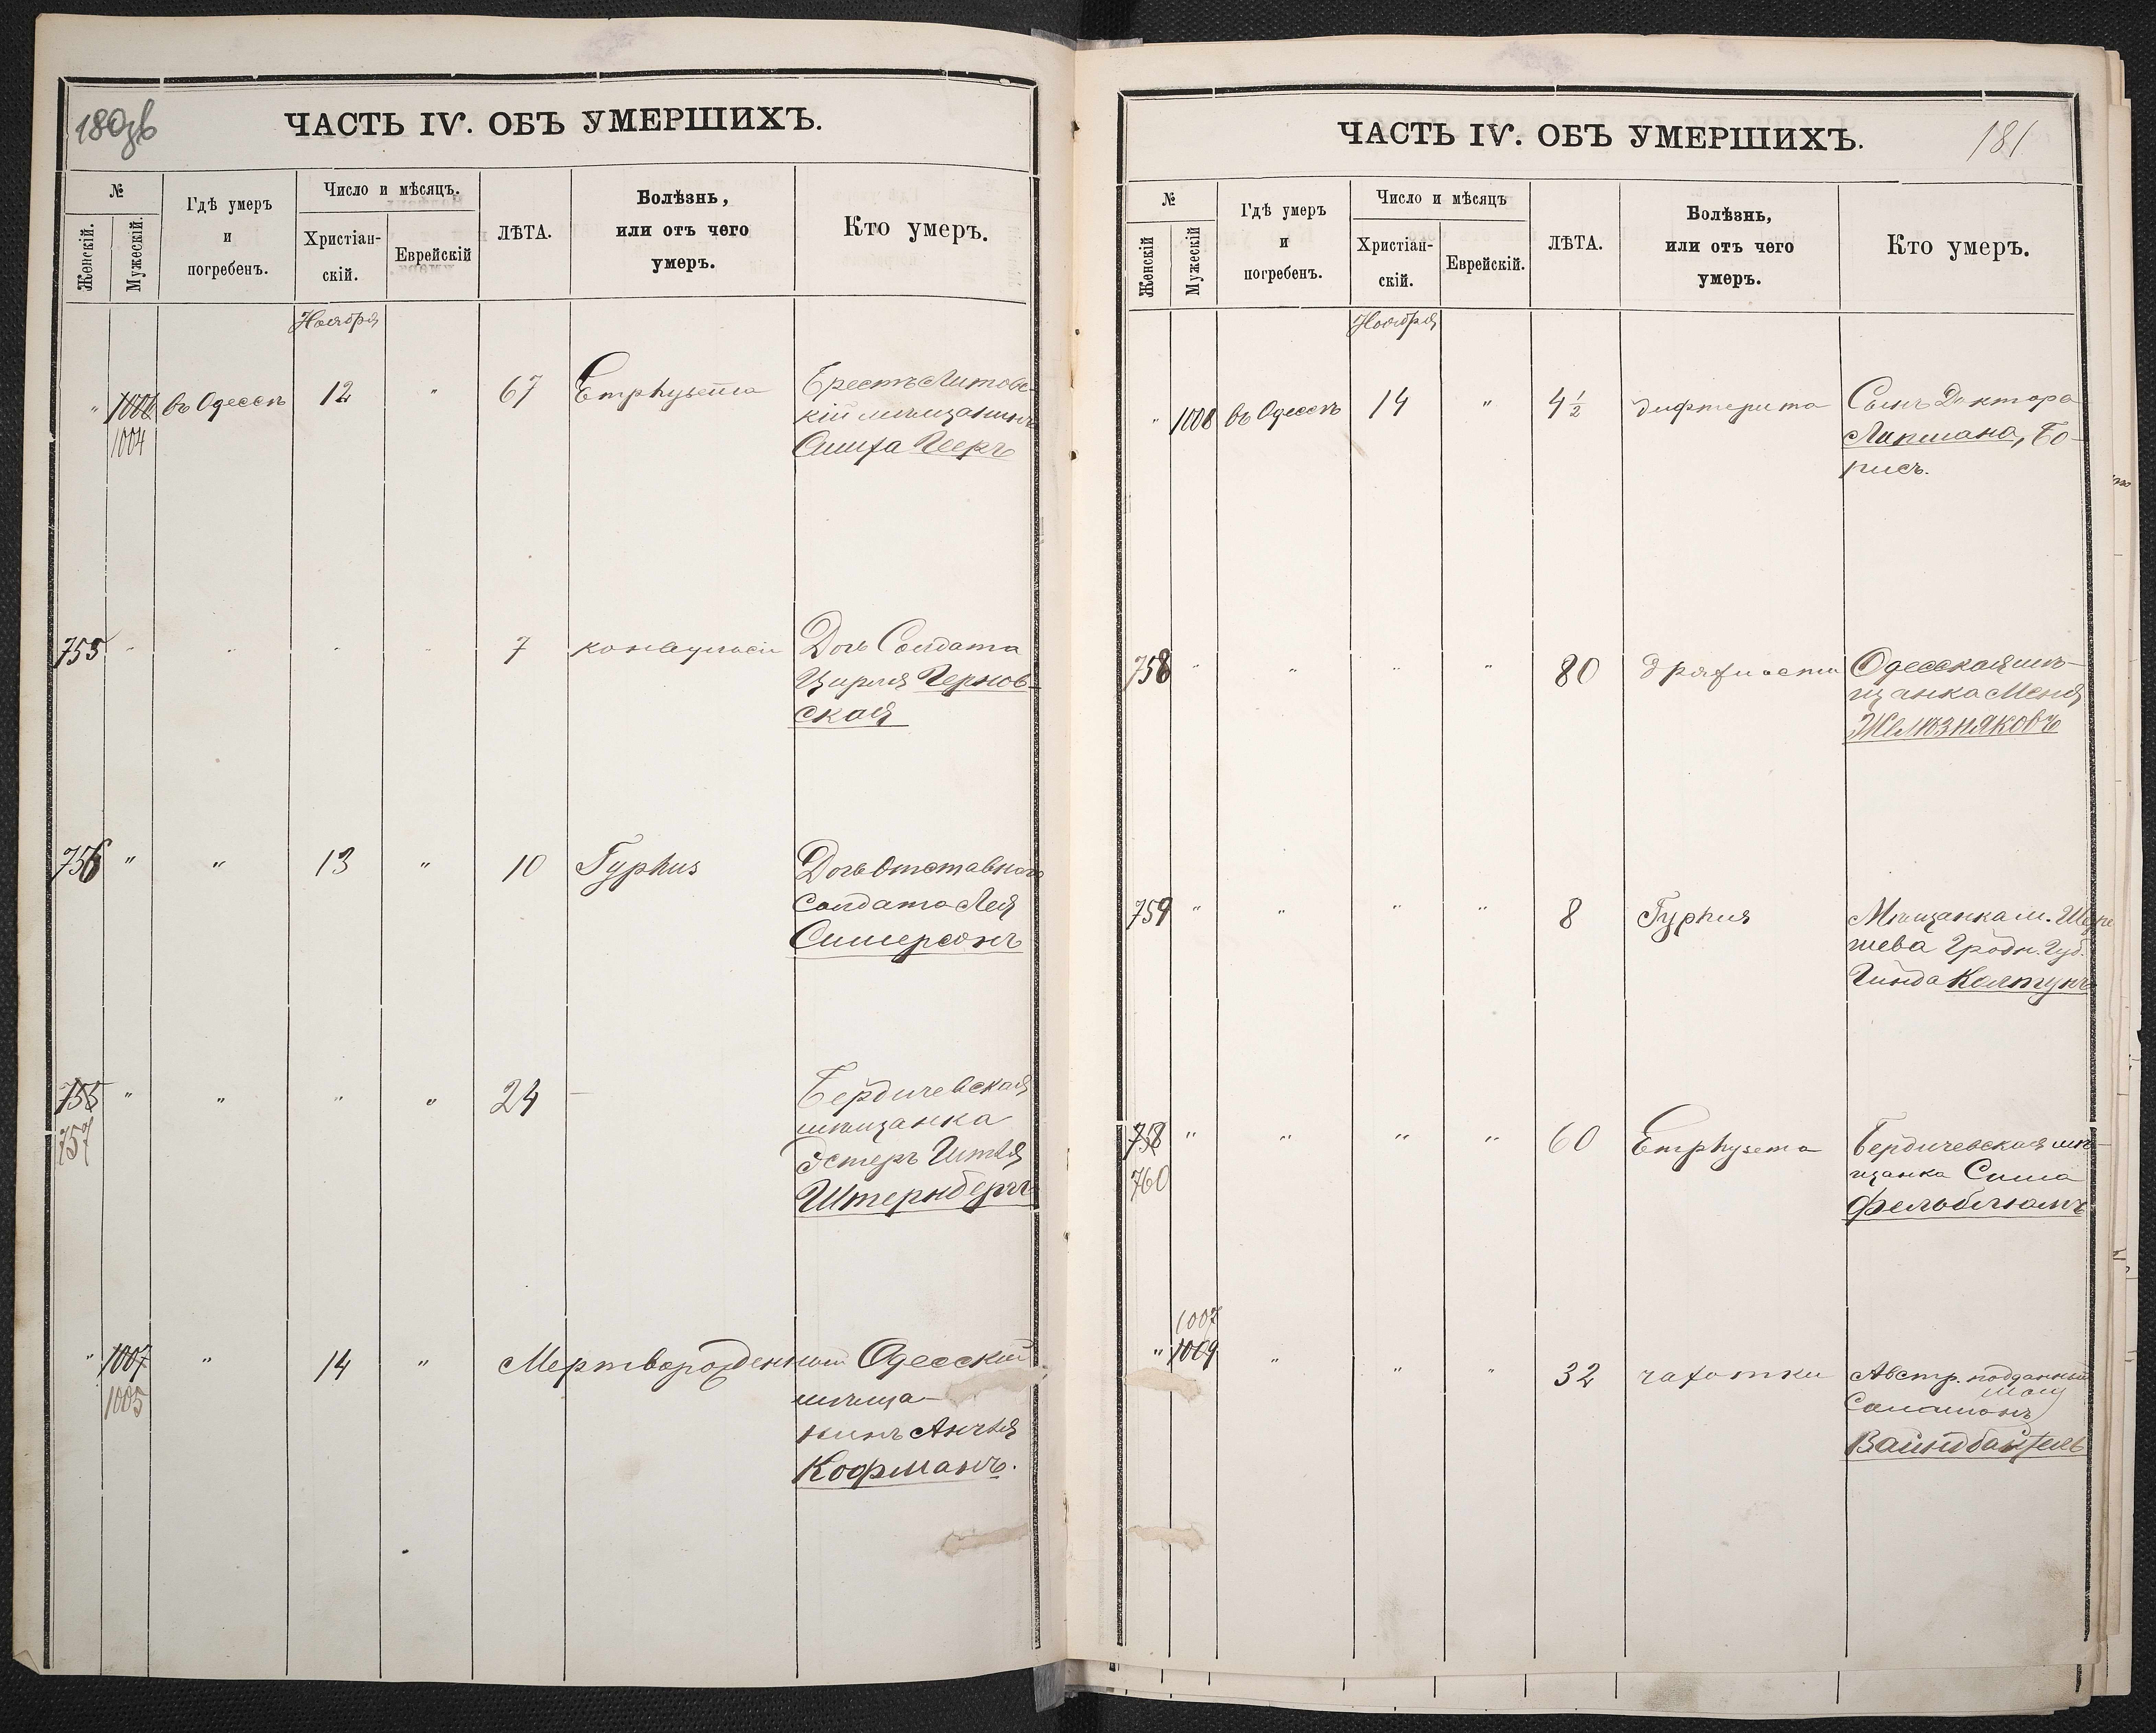 180зв
ЧАСТЬ IV. ОБЪ УМЕРШИХЪ.
№
Женскій.
Мужескій.
Гдѣ умеръ
и
погребенъ.
Число и мѣсяцъ.
Христіан-
скій.
Еврейскій
ЛѢТА.
Болѣзнь,
или отъ чего
умеръ.
Кто умеръ.
Ноября
" 1006 въ Одессѣ 12 " 67 Emphysema Брестъ Литовс-
1004
кій мѣщанинъ
Гееръ
755 " " " " 7 конвульсіи Дочь Солдата
Цирля Чернов-
ская
756 " " 13 " 10 Typhus Дочь Отставного
Солдата Лея
Симерсонъ
755 " " " " 24 — Бердичевская
757
мѣщанка
Эстеръ Итля
Штернбергъ
" 1007 " 14 " Мертворожденный Одесскій
1005
мѣща-
нинъ
Кофманъ.
ЧАСТЬ IV. ОБЪ УМЕРШИХЪ.
181
№
Женскій
Мужескій
Гдѣ умеръ
и
погребенъ.
Число и мѣсяцъ
Христіан-
скій.
Еврейскій.
ЛѢТА.
Болѣзнь,
или отъ чего
умеръ.
Кто умеръ.
Ноября
" 1008 въ Одессѣ 14 " 4½ дифтерита Сынъ Доктора
Липмана, Бо-
рисъ.
758 " " " " 80 дряхлости Одесская мѣ-
щанка Меня
Желѣзняковъ
759 " " " " 8 Typhus Мѣщанка м. Шере
шева Гродн. Губ.
Гинда Колтунъ
758 " " " " 60 Emphysema Бердичевская мѣ-
760
щанка Сима
Фельдблюмъ
1007
" 1009 " " " 32 чахотки Австр. подданный
Саламонъ
Вайнбайтель